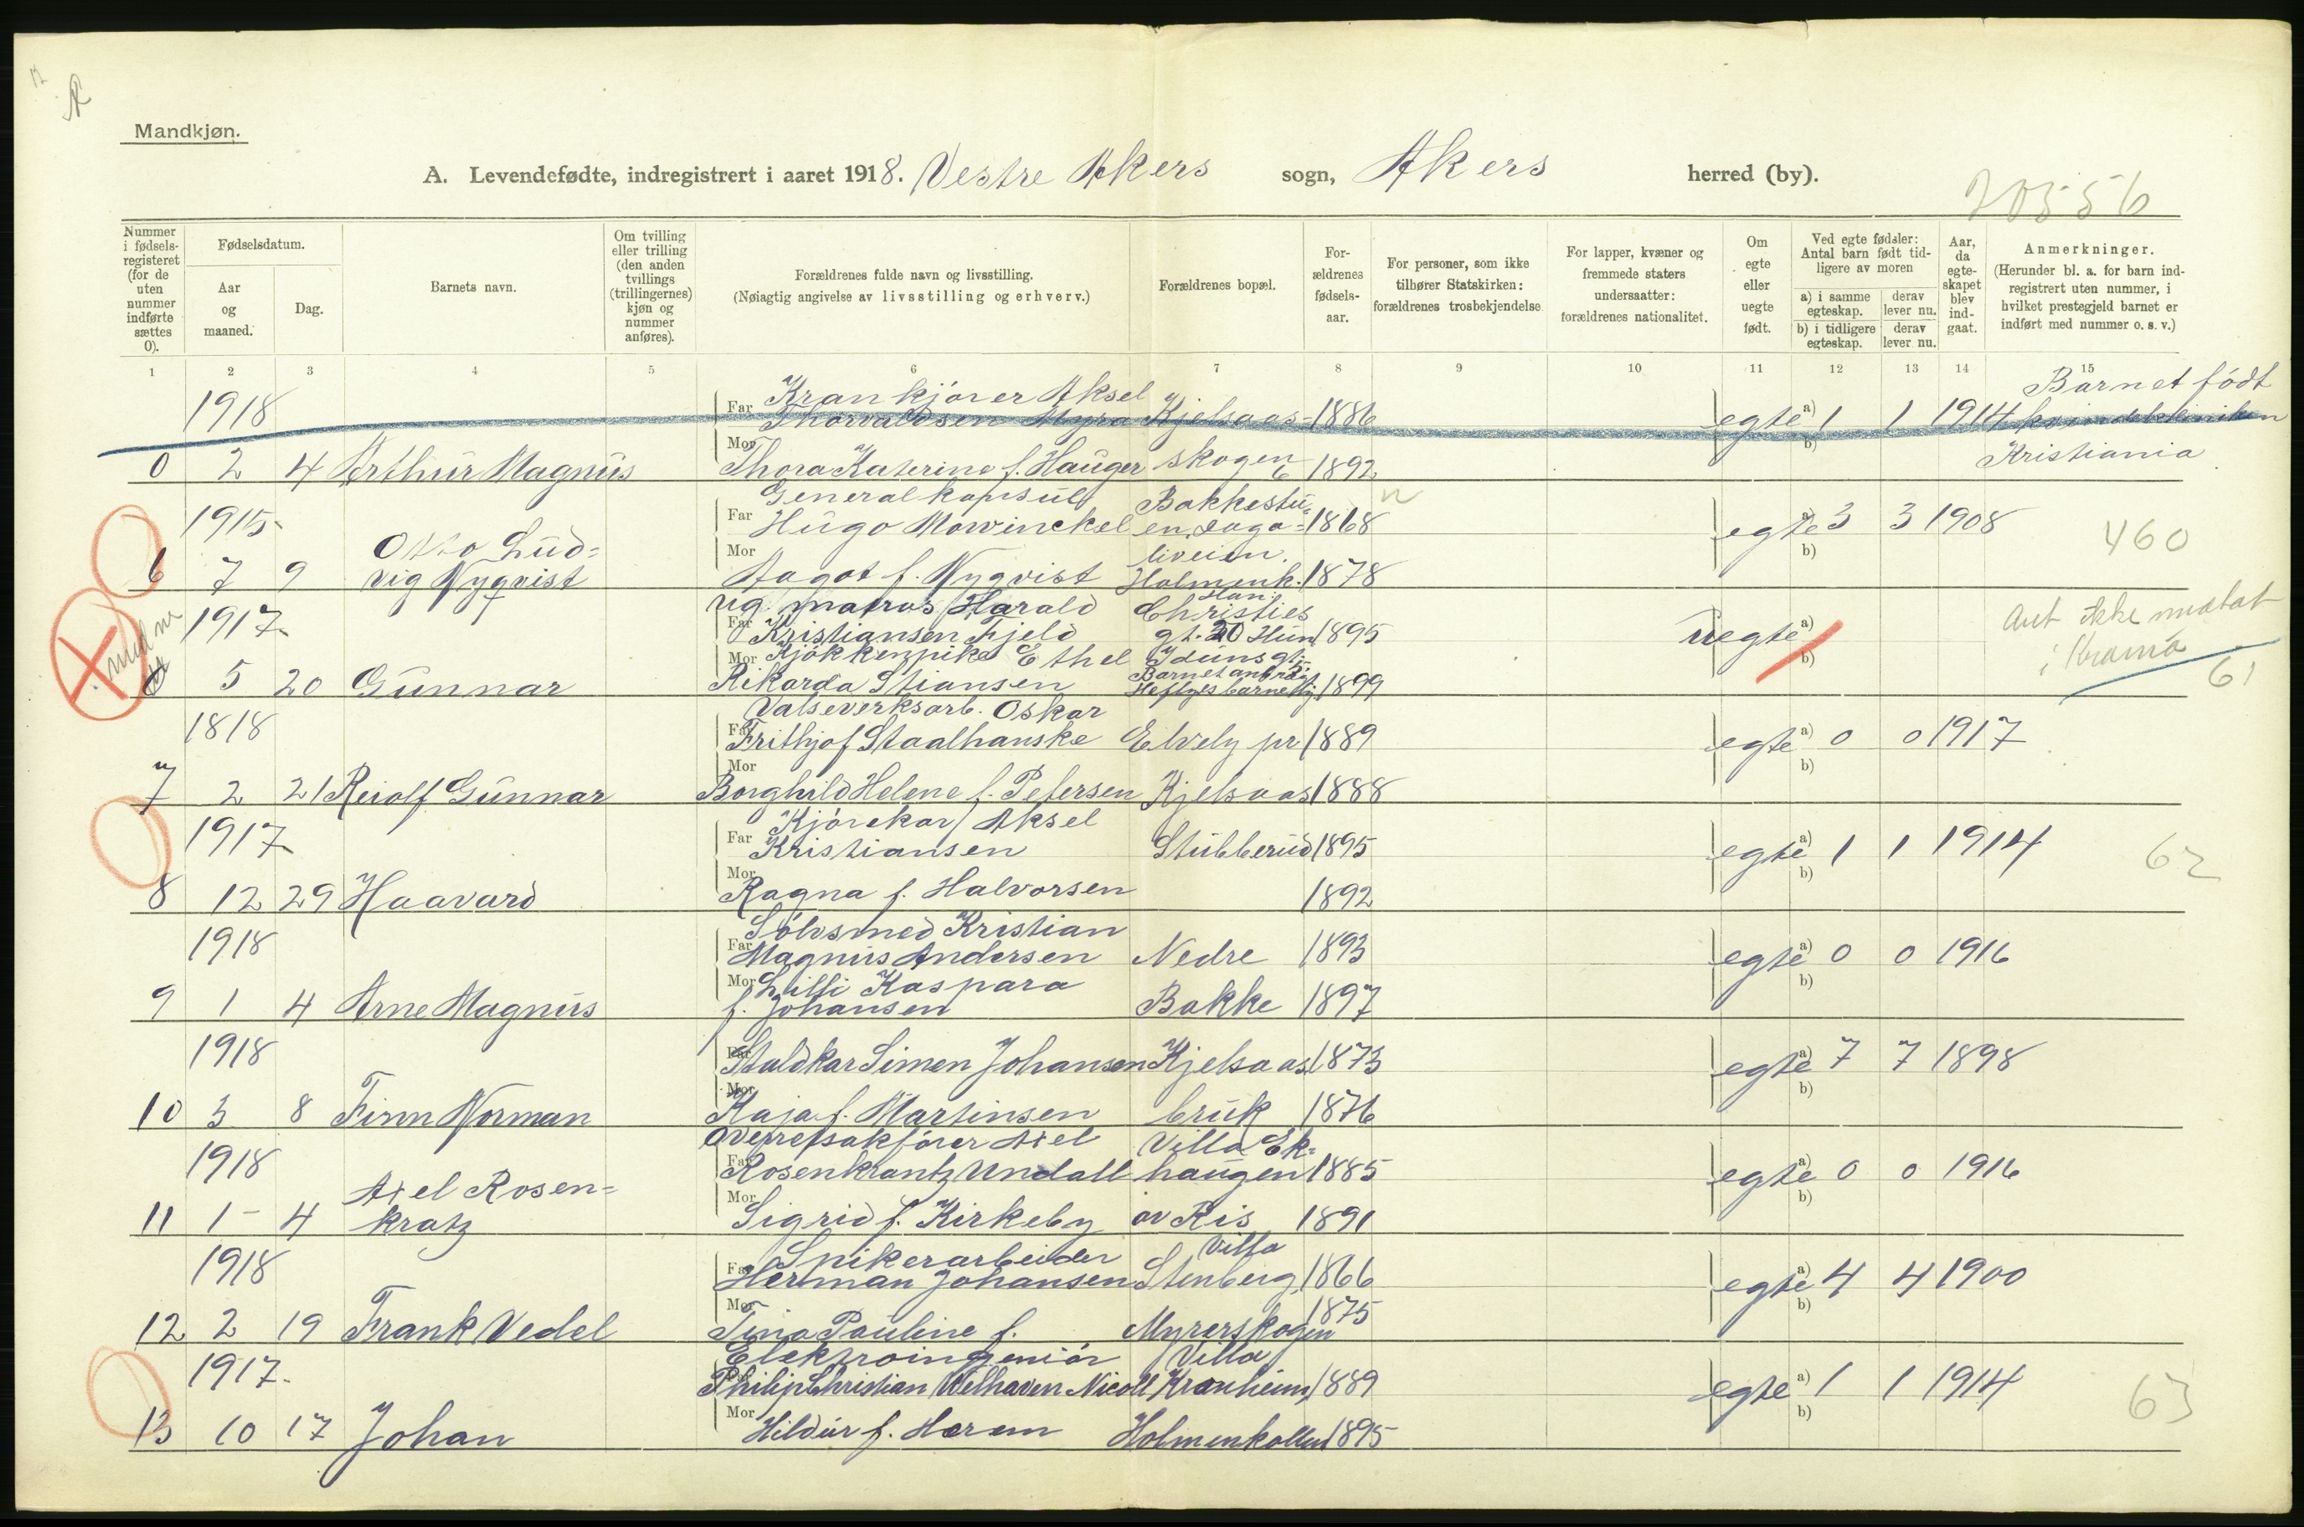 Mandkjøn.
A. Levendefødte, indregistrert i aaret 1918. Vestre Akers sogn, Akers herred (by).
20556
Nummer i fødsels-registeret (for de uten nummer indførte sættes 0).
Fødselsdatum.
Aar og maaned.
Dag.
Barnets navn.
Om tvilling eller trilling (den anden tvillings (trillingernes) kjøn og nummer anføres).
Forældrenes fulde navn og livsstilling.
(Nøiagtig angivelse av livsstilling og erhverv.)
Forældrenes bopæl.
For-ældrenes fødsels-aar.
For personer, som ikke tilhører Statskirken: forældrenes trosbekjendelse
For lapper, kvæner og fremmede staters undersaatter: forældrenes nationalitet.
Om egte eller uegte født.
Ved egte fødsler: Antal barn født tid-ligere av moren
a) i samme egteskap. derav lever nu.
b) i tidligere egteskap. derav lever nu.
Aar, da egte-skapet blev ind-gaat.
Anmerkninger.
(Herunder bl. a. for barn ind-registrert uten nummer, i hvilket prestegjeld barnet er indført med nummer o. s. v.)
1 2 3 4 5 6 7 8 9 10 11 12 13 14 15
1918 Far Krankjører Aksel Barnet født
Thorvaldsen Myra Kjelsaas- 1886 egte a) 1 1 1914 kvindekliniken
0 2 4 Arthur Magnus Mor Thora Katerine f. Hauger skogen 1892 b) Kristiania
1915 Far Generalkonsul Bakkestu-
Hugo Mowinckel en, Daga- 1868 egte a) 3 3 1908 460
Otto Lud- Mor liveien. b)
6 7 9 vig Nyqvist Aagot f. Nyqvist Holmenk. 1878
1917 Far ug. matros Harald Han: Christies
Kristiansen Fjeld gt. 20 Hun 1895 uegte a) Ant ikke
Mor Kjøkkenpike Ethel Iduns gt. b) i Krania
0 5 20 Gunnar Rikarda Stiansen Heftyes barnehj. 1899 61
1818 Far Valseverksarb. Oskar
Frithjof Staalhanske Elvely pr 1889 egte a) 0 0 1917
7 2 21 Reiolf Gunnar Mor Borghild Helene f. Petersen Kjelsaas 1888 b)
1917 Far Kjørekar Aksel
Kristiansen Stubberud 1895 egte a) 1 1 1914 62
8 12 29 Haavard Mor Ragna f. Halvorsen 1892 b)
1918 Far Sølvsmed Kristian
Magnus Andersen Nedre 1893 egte a) 0 0 1916
Mor Lilli Kaspara b)
9 1 4 Arne Magnus f. Johansen Bakke 1897
1918 Far Staldkar Simen Johansen Kjelsaas 1873 egte a) 7 7 1898
10 3 8 Finn Norman Mor Kaja f. Martinsen bruk 1876 b)
1918 Far Overretsakfører Axel Villa Ek-
Rosenkrantz Undall haugen 1885 egte a) 0 0 1916
Axel Rosen- Mor b)
11 1 4 kratz Sigrid f. Kirkeby av Ris 1891
1918 Far Spikerarbeider Villa
Herman Johansen Stenberg 1866 egte a) 4 4 1900
12 2 19 Frank Vedel Mor Tina Pauline f. Myrerskogen 1875 b)
1917. Far Elektroingeniør Villa
Philip Christian Welhaven Nicoll Kranheim 1889 egte a) 1 1 1914 63
13 10 17 Johan Mor Hildur f. Harem Holmenkollen 1895 b)